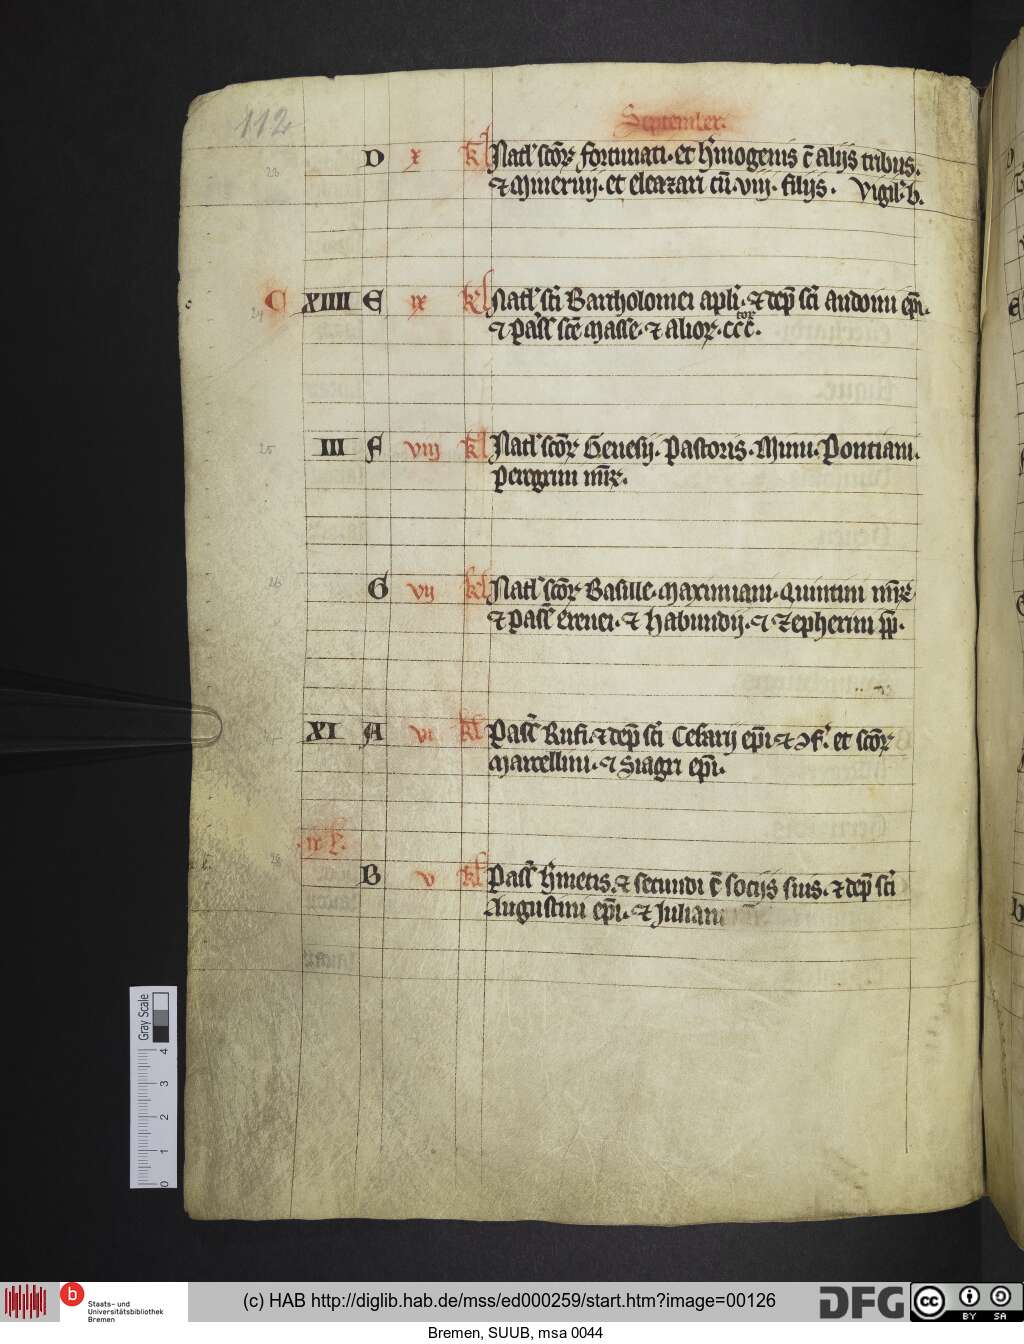 112
September.
D x kl Natl' scōꝝ fortunati· et h'mogenis c̄ alijs tribus.
23
⁊ Mineruij· et eleazari cū·viij· filijs. Vigil'·b.
C XIIII E ix kl Natl' sc̄i Bartholomei apl'i·⁊ dep̄ sc̄i audoini ep̄i.
24
⁊ Pass̄ sc̄e Masse·⁊ alioꝝ·ccc.
tor
III F viij kl Natl' scōꝝ Genesij· Pastoris· Minii· Pontiani·
25
Peregrini m̄rꝝ.
26
G vij kl Natl' scōꝝ Basille·Maximiani·Quintini m̄rꝝ
⁊ Pass̄ Erenei·⁊ Habundij·⁊ Zepherini pp̄.
XI A vi kl Pass̄ Rufi·⁊ dep̄ sc̄i Cesarij ep̄i ⁊ ↄf'. et scōꝝ
Marcellini·⁊ Siagri ep̄i.
28
B v kl Pass̄ h'metis·⁊ secundi c̄ socijs suis·⁊ dep̄ sc̄i
Augustini ep̄i·⁊ Juliani
Gray Scale
4
3
2
1
0
b Staats- und
Universitätsbibliothek
Bremen
(c) HAB http://diglib.hab.de/mss/ed000259/start.htm?image=00126
DFG
cc BY SA
Bremen, SUUB, msa 0044